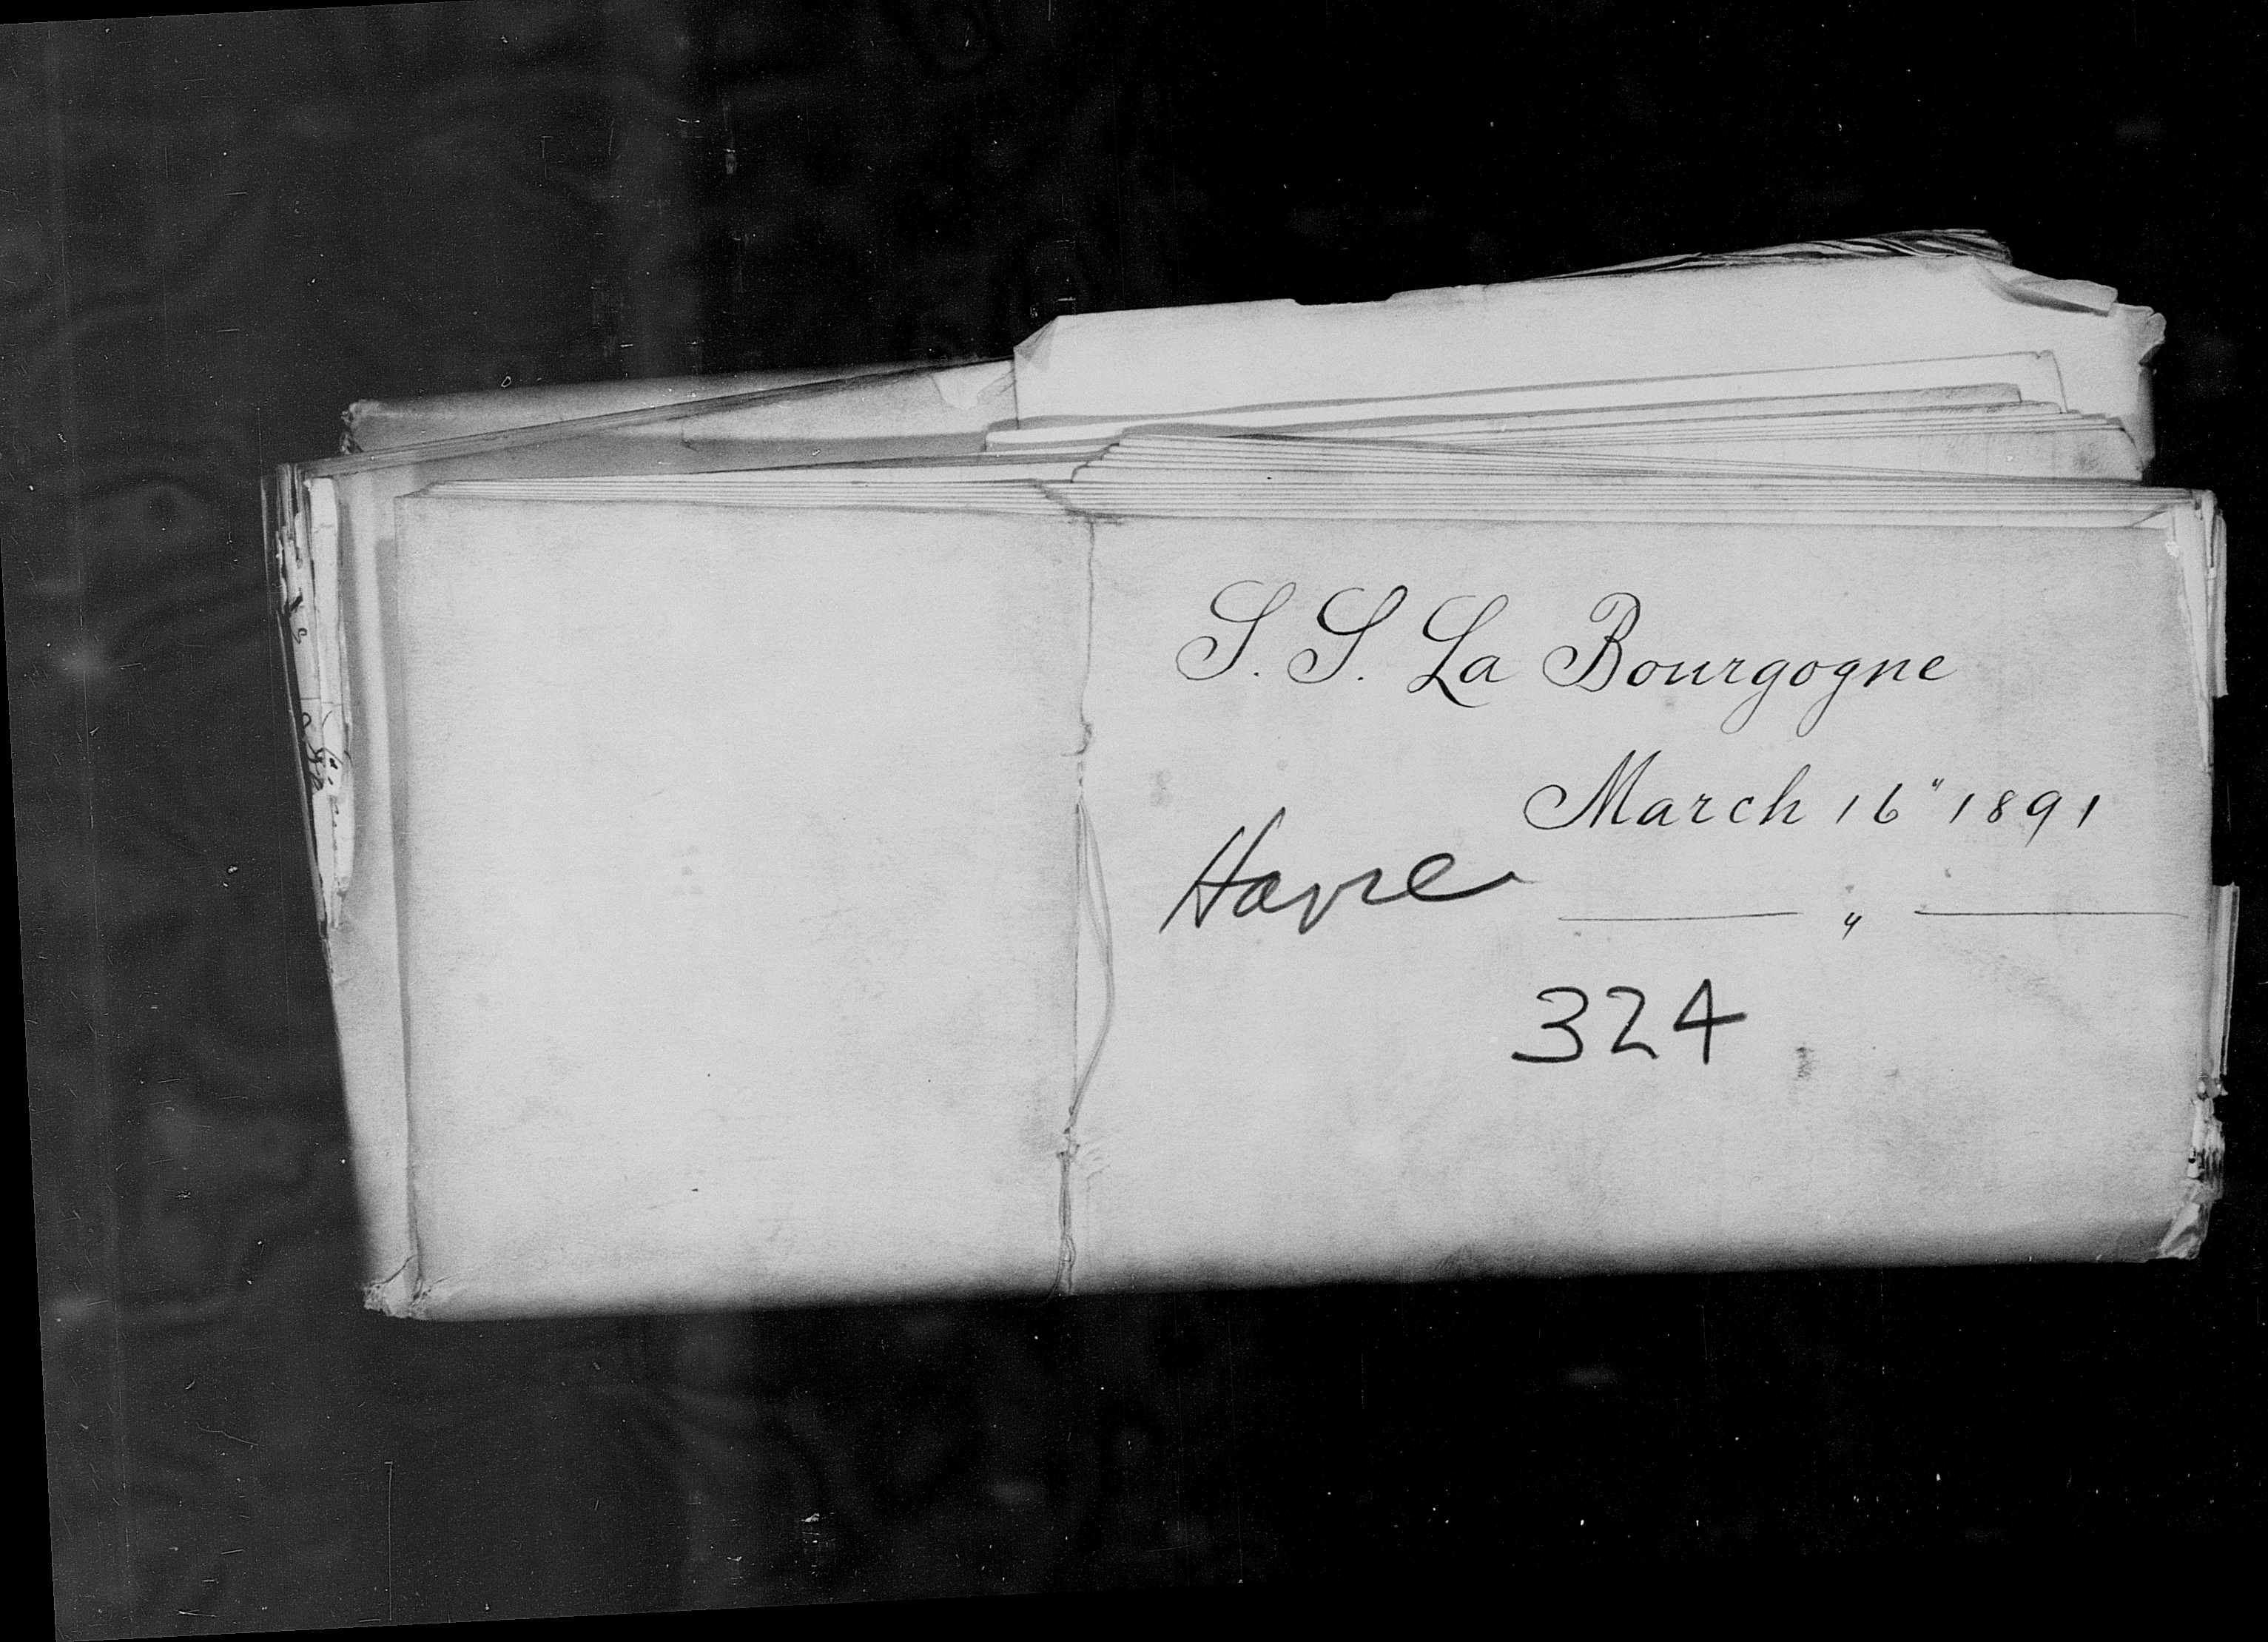 S. S. La Bourgogne
March 16" 1891
Havre
— " —
324